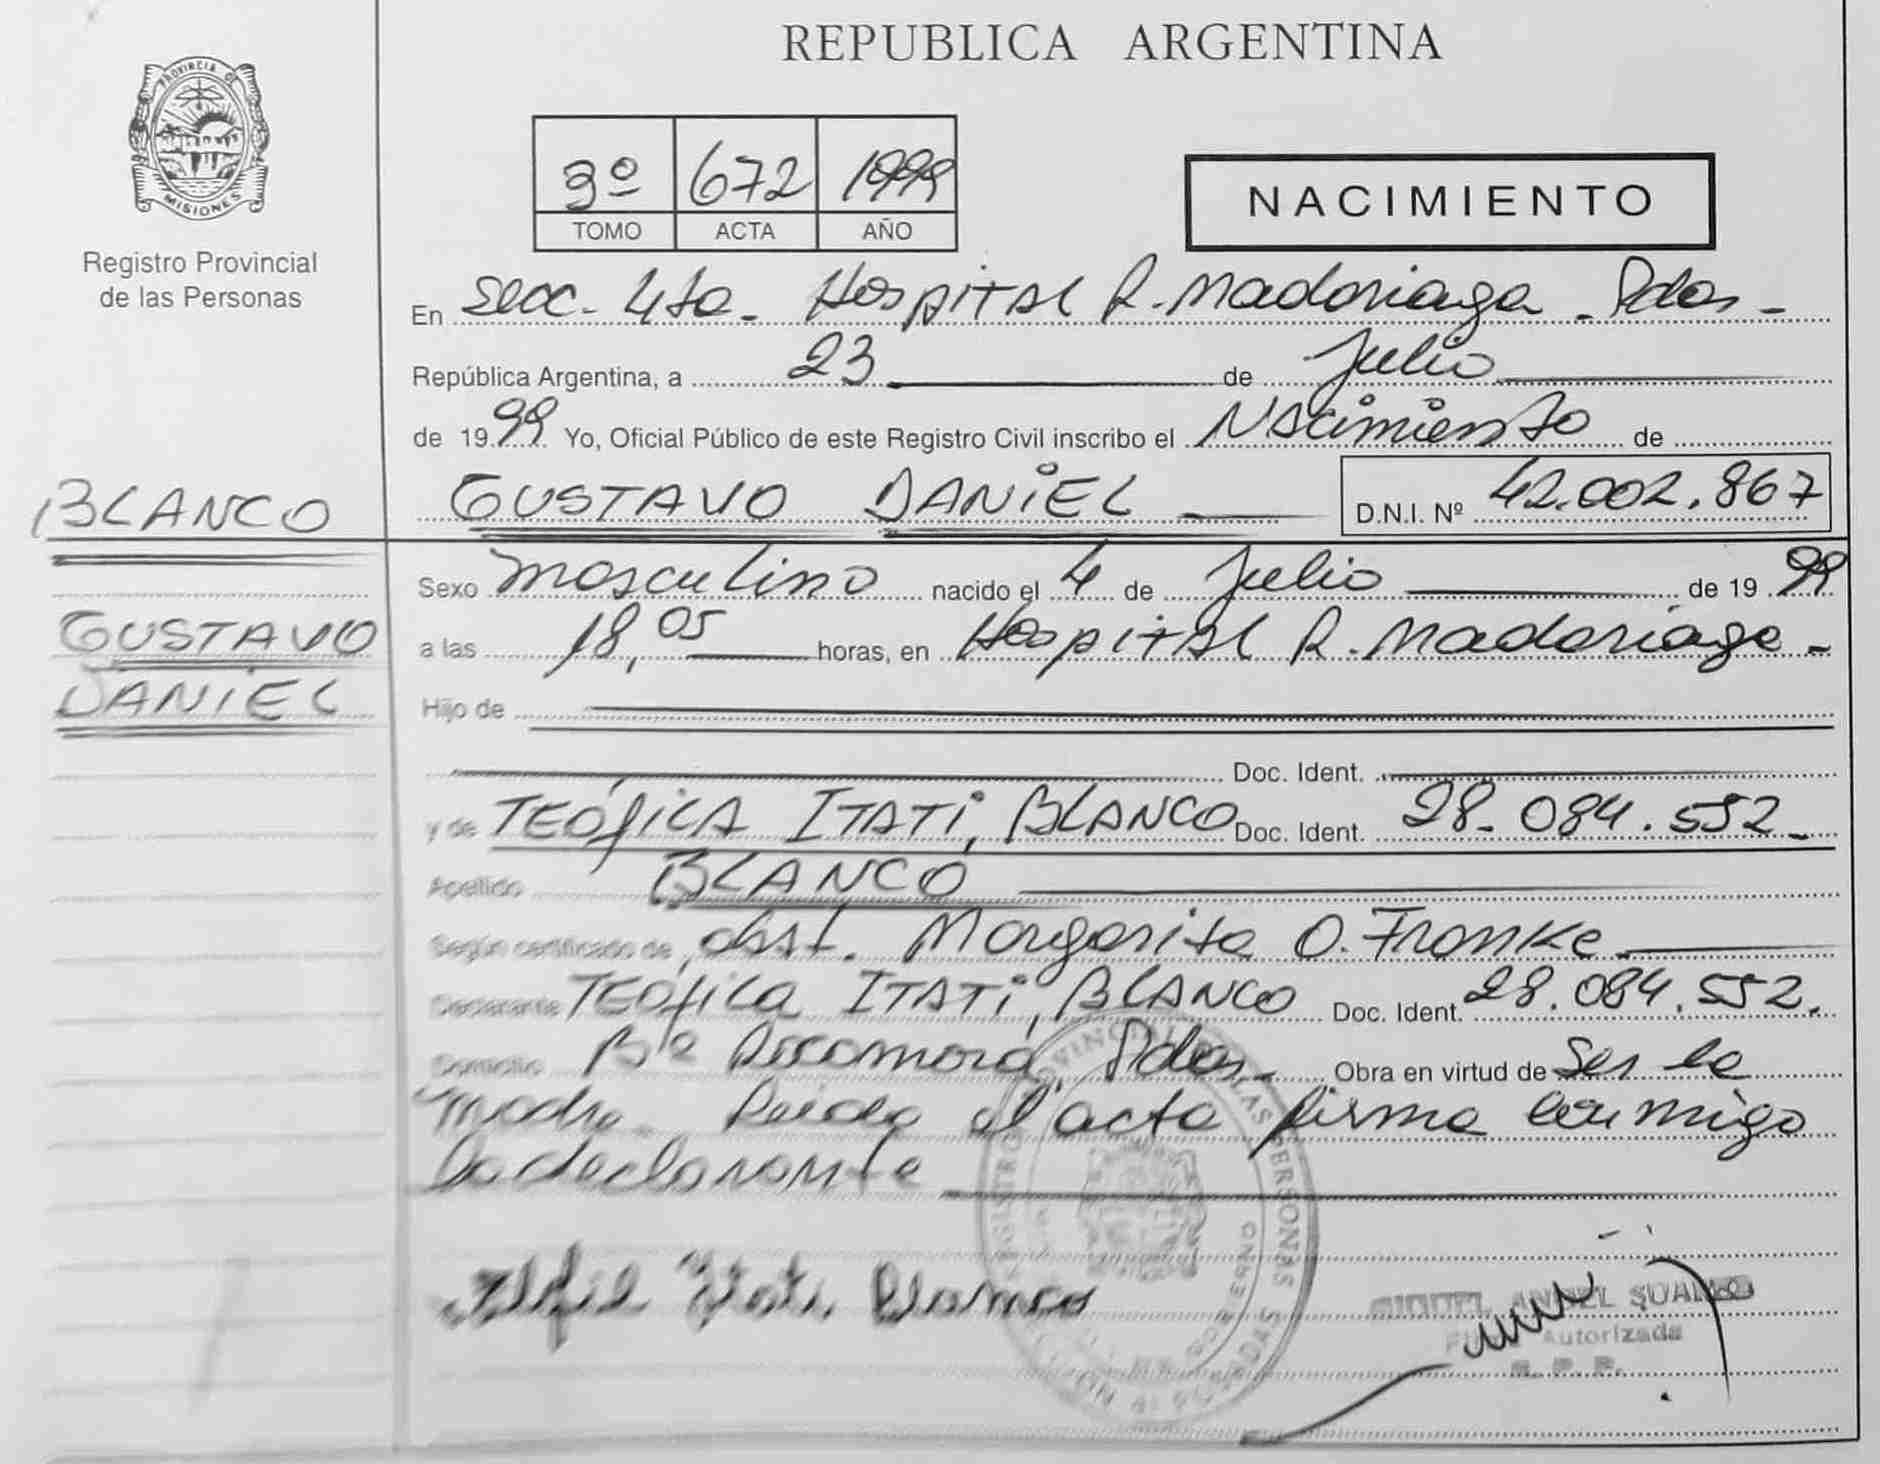 REPUBLICA ARGENTINA
PROVINCIA D
MISIONES
Registro Provincial
de las Personas
3º 672 1999
TOMO ACTA AÑO
NACIMIENTO
En Secc. 4ta. Hospital R. Madariaga - Pdas -
República Argentina, a 23 de Julio
de 1999 Yo, Oficial Público de este Registro Civil inscribo el Nacimiento de
BLANCO
GUSTAVO DANIEL D.N.I. Nº 42.002.867
GUSTAVO
DANIEL
Sexo masculino nacido el 4 de Julio de 1999
a las 18,05 horas, en Hospital R. Madariaga -
Hijo de
Doc. Ident.
y de TEÓfiLA ITATI, BLANCO Doc. Ident. 28.084.552
Apellido BLANCO
Según certificado de obst. Margarita O. Franke
Declarante TEÓfiLA ITATI, BLANCO Doc. Ident. 28.084.552.
Domicilio Bº Rocamora, Pdas - Obra en virtud de Ser la
madre. Leida el acta firma conmigo
la declarante
Itati Blanco
MIGUEL ANGEL
Firma Autorizada
R. P. P.